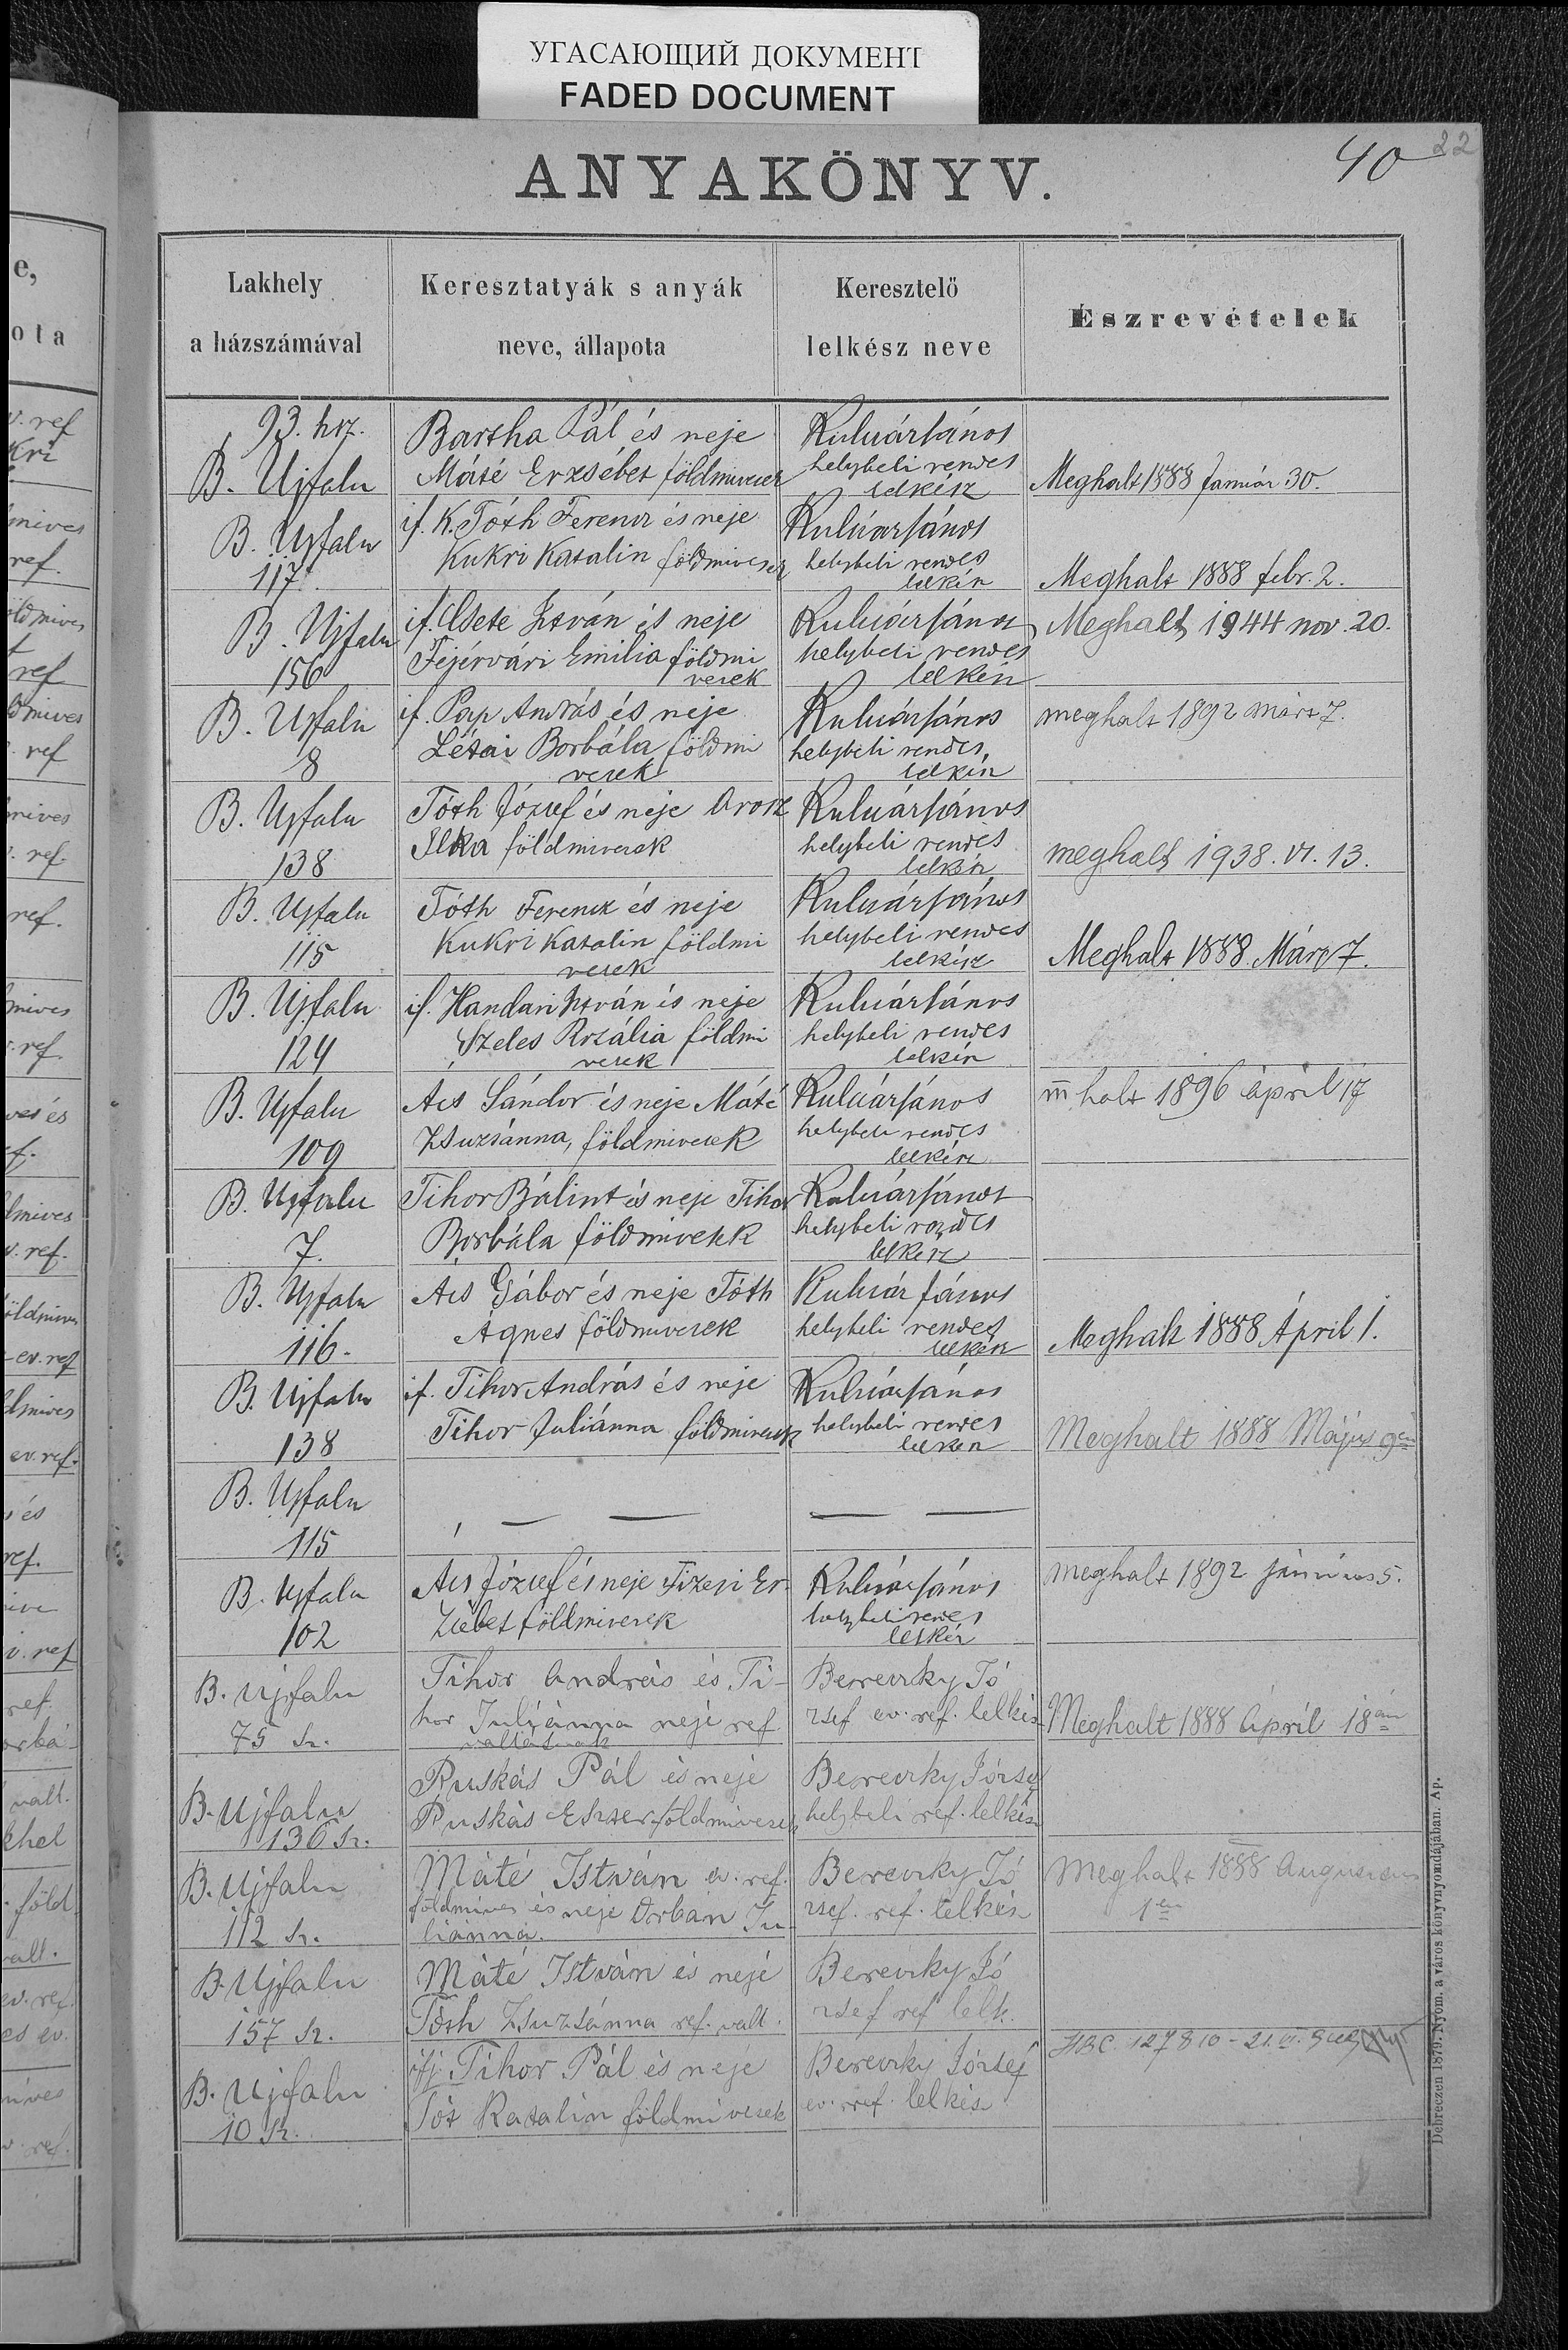 УГАСАЮЩИЙ ДОКУМЕНТ
FADED DOCUMENT
40 22
ANYAKÖNYV.
Lakhely
a házszámával
Keresztatyák s anyák
neve, állapota
Keresztelő
lelkész neve
Észrevételek
93. hsz.
B. Ujfalu
Bartha Pál és neje
Máté Erzsébet földmivesek
János
helybeli rendes
lelkész
Meghalt 1888 Január 30.
B. Ujfalu
117
if. K. Tóth Ferencz és neje
Kukri Katalin földmivesek
János
helybeli rendes
lelkész
Meghalt 1888 febr. 2.
B. Ujfalu
156
if. Csete István és neje
Fejérvári Emilia földmi
vesek
János
helybeli rendes
lelkész
Meghalt 1944 nov. 20.
B. Ujfalu
8
if. Pap András és neje
Létai Borbála földmi
vesek
János
helybeli rendes
lelkész
meghalt 1892 márt 7.
B. Ujfalu
138
Tóth József és neje Orosz
Ilka földmivesek
János
helybeli rendes
lelkész
meghalt 1938. VI. 13.
B. Ujfalu
115
Tóth Ferencz és neje
Kukri Katalin földmi
vesek
János
helybeli rendes
lelkész
Meghalt 1888. Márcz 7.
B. Ujfalu
124
if. Handari István és neje
Szeles Rozália földmi
vesek
János
helybeli rendes
lelkész
B. Ujfalu
109
Ács Sándor és neje Máté
Zsuzsánna, földmivesek
János
helybeli rendes
lelkész
m halt 1896 ápril 17
B. Ujfalu
7.
Tihor Bálint és neje Tihor
Borbála földmivesek
János
helybeli rendes
lelkész
B. Ujfalu
116.
Ács Gábor és neje Tóth
Ágnes földmivesek
János
helybeli rendes
lelkész
Meghalt 1888 Ápril 1.
B. Ujfalu
138
if. Tihor András és neje
Tihor Juliánna földmivesek
János
helybeli rendes
lelkész
Meghalt 1888 Május 9én
B. Ujfalu
115
— —
— —
B. Ujfalu
102
Ács József és neje Füzesi Er-
zsébet földmivesek
János
helybeli rendes
lelkész
meghalt 1892 június 5.
B. Ujfalu
75 sz.
Tihor András és Ti-
hor Juliánna neje ref
vallásuak
Bereczky Jó
zsef ev. ref. lelkész
Meghalt 1888 Ápril 18án
B. Ujfalu
136 sz.
Puskás Pál és neje
Puskás Eszter földmivesek
Bereczky József
helybeli ref. lelkész
B. Ujfalu
112 sz.
Máté István ev. ref.
földmives és neje Orbán Ju-
liánna.
Bereczky Jó
zsef. ref. lelkész
Meghalt 1888 Augusztus
1én
B. Ujfalu
157 sz.
Máté István és neje
Tóth Zsuzsánna ref. vall.
Bereczky Jó
zsef ref lelk.
B. Ujfalu
10 sz.
ifj. Tihor Pál és neje
Tót Katalin földmivesek
Bereczky József
ev. ref. lelkész
127810
Debreczen 1879. Nyom. a város könyvnyomdájában. Ap.